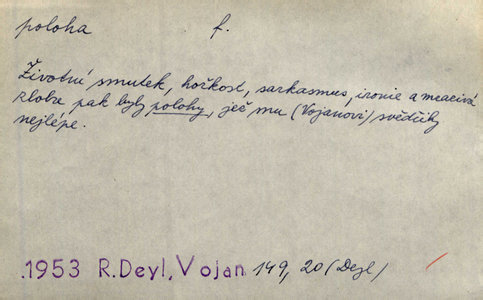 poloha f.
Životní smutek, hořkost, sarkasmus, ironie a mracivá
zloba pak byly polohy, jež mu (Vojanovi) svědčily
nejlépe.
.1953 R.Deyl, Vojan 149, 20 (Deyl)